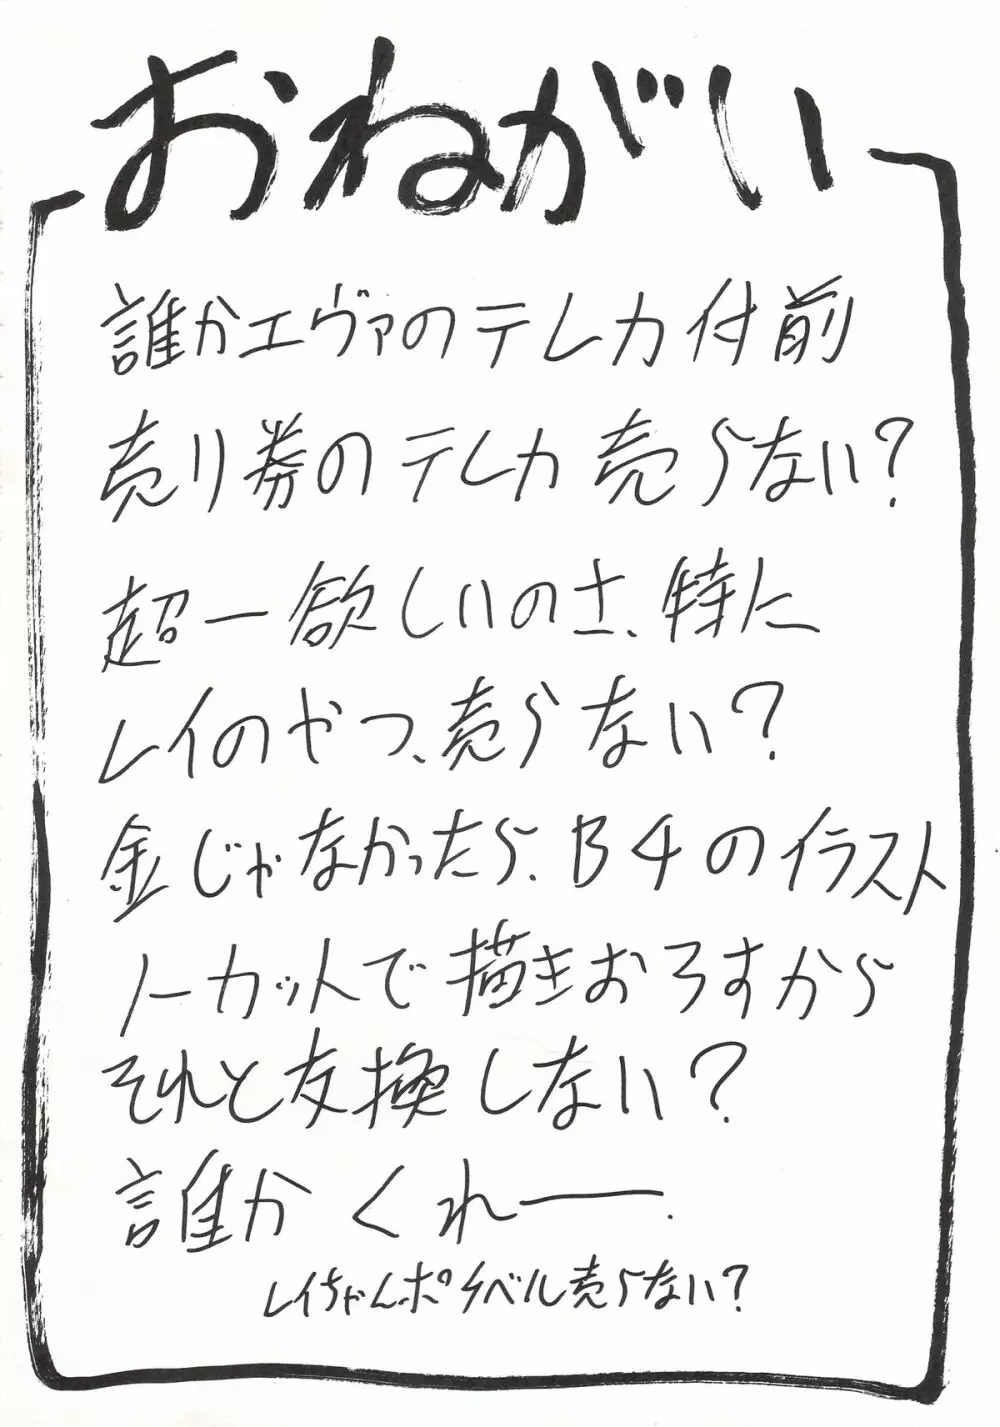 おねがい
誰かエヴァのテレカ付前
売り券のテレカ売らない?
超ー欲しいのさ、特に
レイのやつ、売らない?
金じゃなかったら、B4のイラスト
1カットで描きおろすから
それと交換しない?
誰かくれー.
レイちゃんポケベル売らない?